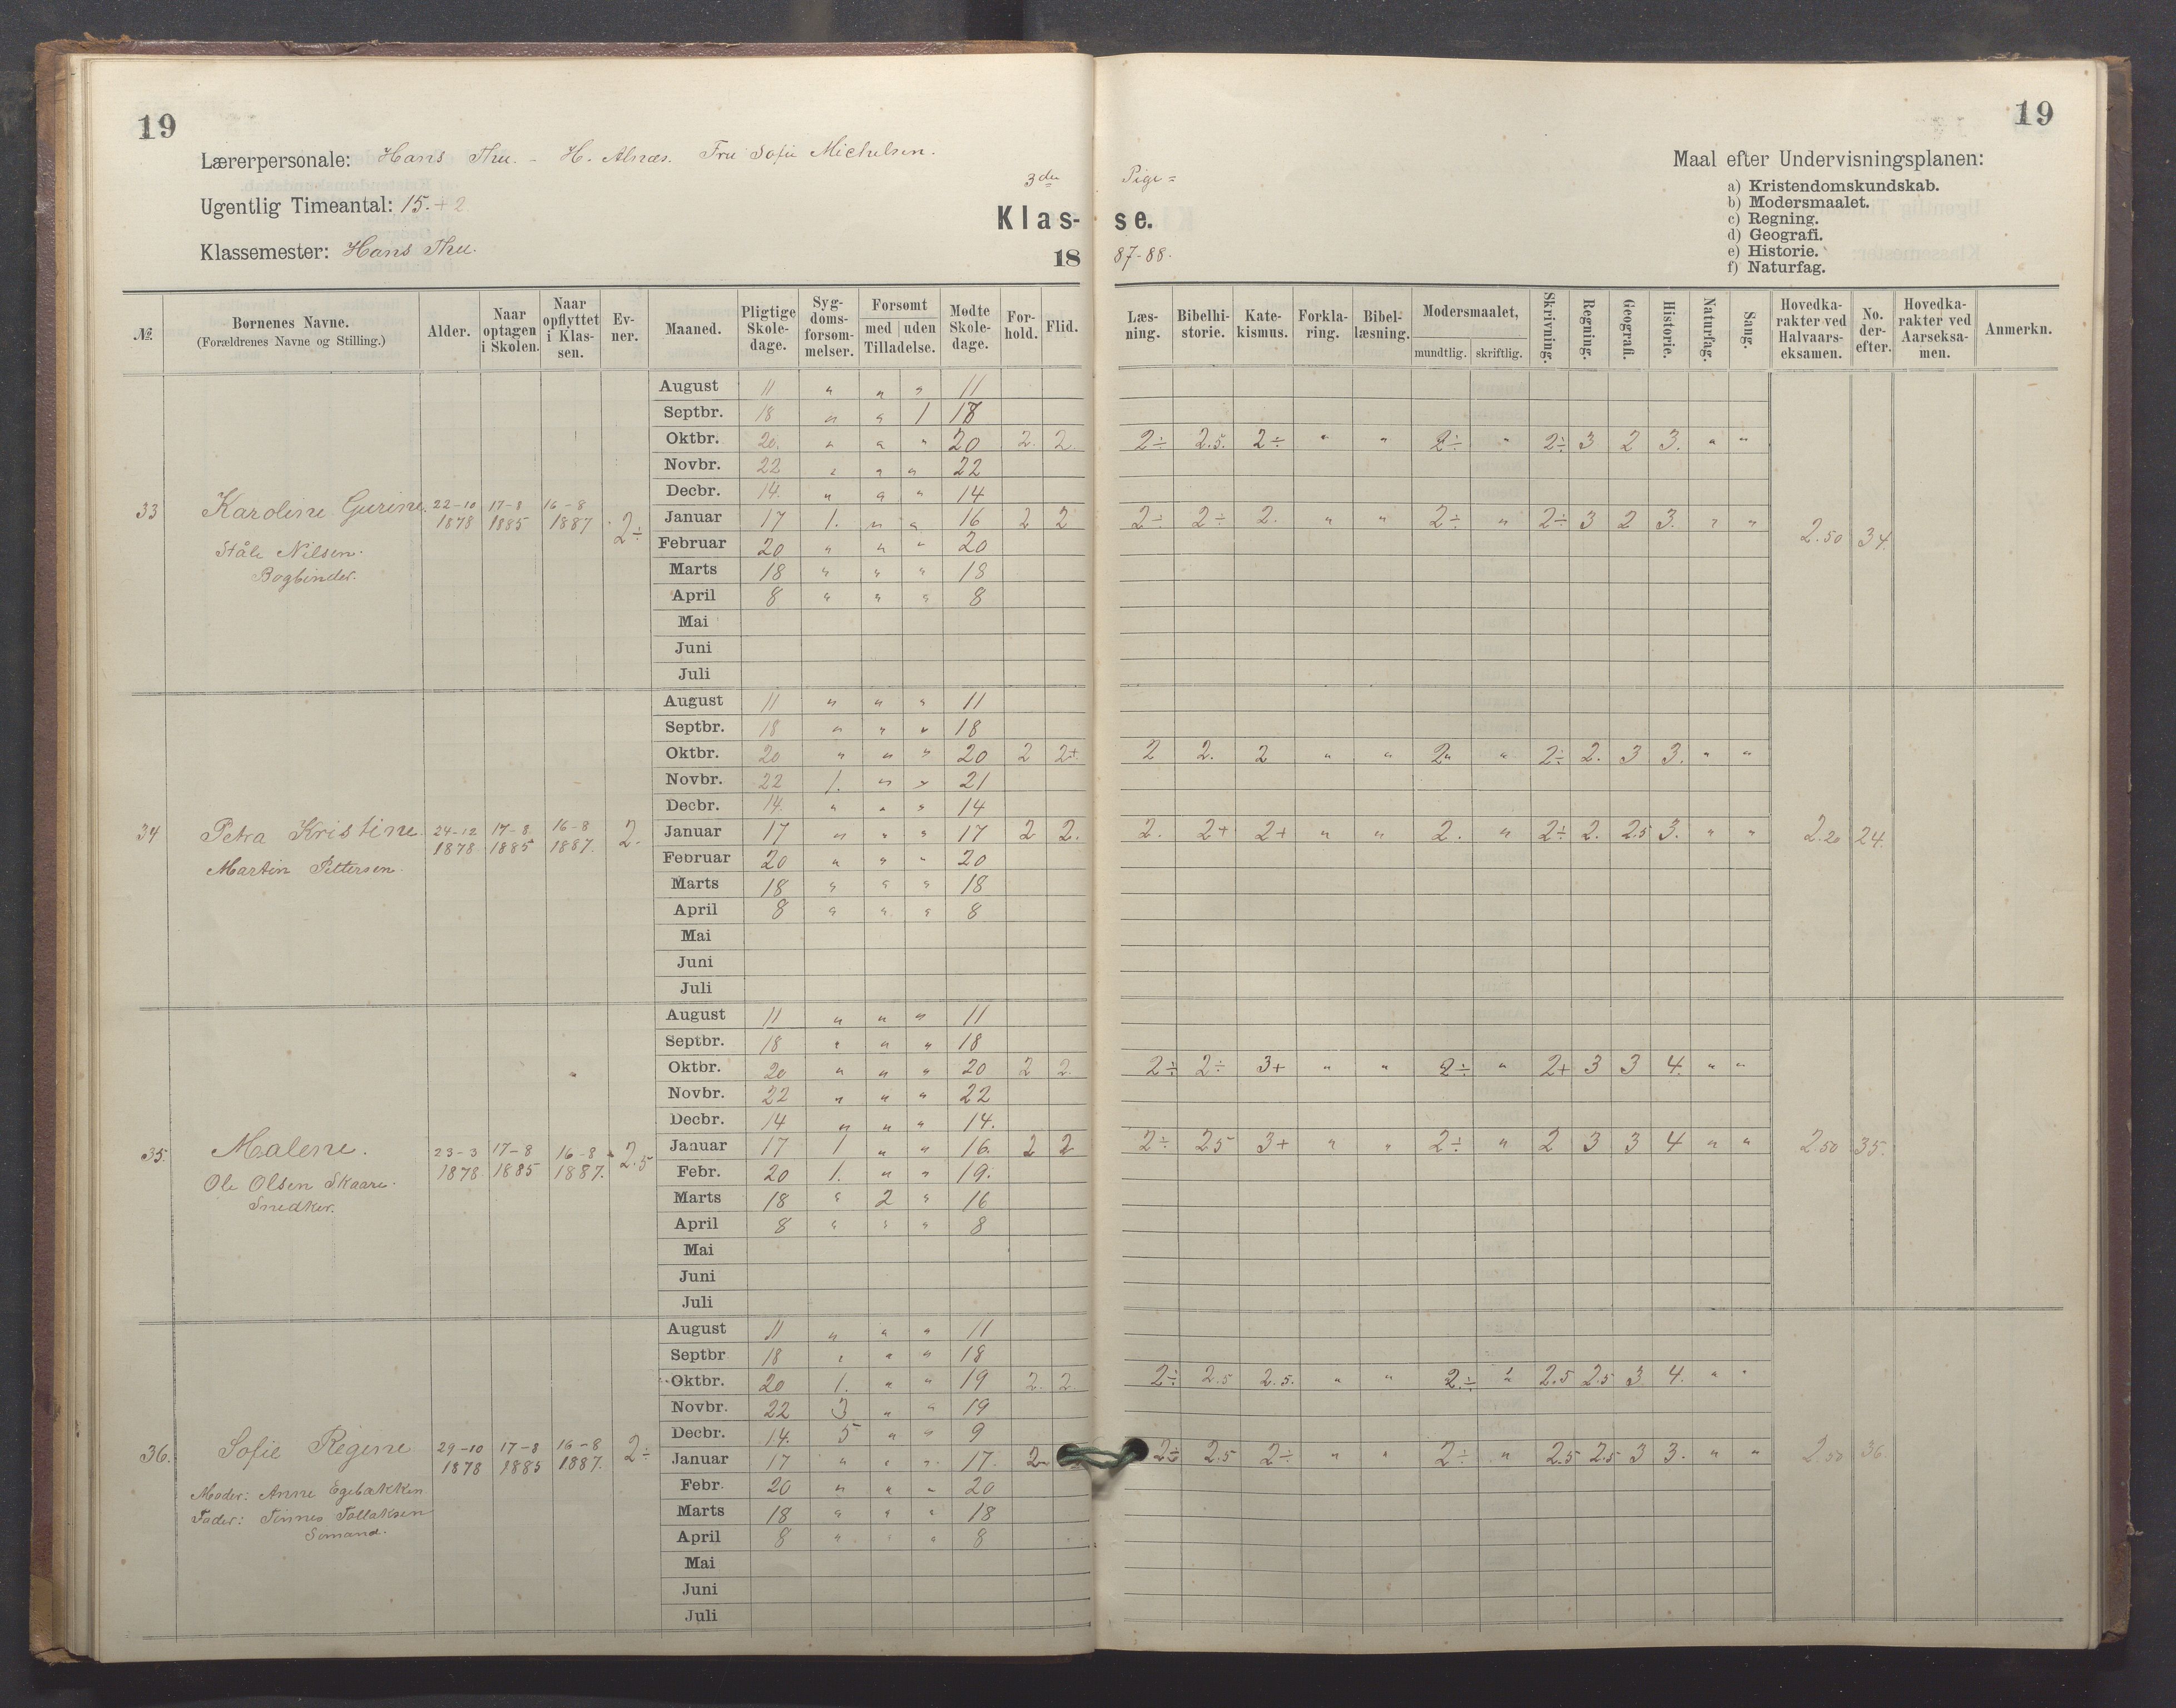 19
19
Lærerpersonale: Hans Thu. - H. Alnæs. Fru Sofie Michelsen.
Maal efter Undervisningsplanen:
Ugentlig Timeantal: 15.+2
3die Pige=
a) Kristendomskundskab.
b) Modersmaalet.
c) Regning.
Klas- se.
d) Geografi.
Klassemester: Hans Thu.
e) Historie.
1887-88.
f) Naturfag.
№ Børnenes Navne. (Forældrenes Navne og Stilling.) Alder. Naar optagen i Skolen. Naar opflyttet i Klassen. Evner. Maaned. Pligtige Skoledage. Sygdomsforsømmelser. Forsømt med uden Tilladelse. Mødte Skoledage. Forhold. Flid. Læsning. Bibelhistorie. Katekismus. Forklaring. Bibellæsning. Modersmaalet, mundtlig. skriftlig. Skrivning. Regning. Geografi. Historie. Naturfag. Sang. Hovedkarakter ved Halvaarseksamen. No. derefter. Hovedkarakter ved Aarseksamen. Anmerkn.
33 Karoline Gurine. 22-10 1878 17-8 1885 16-8 1887 2÷ 2.50 34.
Ståle Nilsen.
Bogbinder.
August 11 " " " 11
Septbr. 18 " " 1 18
Oktbr. 20. " " " 20 2. 2. 2÷ 2.5. 2÷ " " 2÷ " 2÷ 3 2 3. " "
Novbr. 22 " " " 22
Decbr. 14. " " " 14
Januar 17 1. " " 16 2 2 2÷ 2÷ 2. " " 2÷ " 2÷ 3 2 3. " "
Februar 20 " " " 20
Marts 18 " " " 18
April 8 " " " 8
Mai
Juni
Juli
34 Petra Kristine. 24-12 1878 17-8 1885 16-8 1887. 2. 2.20 24.
Martin Pettersen.
August 11 " " " 11
Septbr. 18 " " " 18
Oktbr. 20 " " " 20 2 2+ 2 2. 2 " " 2 " 2÷ 2. 3 3. " "
Novbr. 22 1. " " 21
Decbr. 14. " " " 14
Januar 17 " " " 17 2 2. 2. 2+ 2+ " " 2. " 2÷ 2. 2.5 3. " "
Februar 20 " " " 20
Marts 18 " " " 18
April 8 " " " 8
Mai
Juni
Juli
35. Malene. 23-3 1878 17-8 1885 16-8 1887. 2.5 2.50 35.
Ole Olsen Skaare.
Snedker.
August 11 " " " 11
Septbr. 18 " " " 18
Oktbr. 20 " " " 20 2 2. 2÷ 2÷ 3+ " " 2÷ " 2+ 3 3 4. " "
Novbr. 22 " " " 22
Decbr. 14 " " " 14.
Januar 17 1 " " 16. 2 2 2÷ 25 3+ " " 2÷ " 2 3 3 4 " "
Febr. 20 1. " " 19.
Marts 18 " 2 " 16
April 8 " " " 8
Mai
Juni
Juli
36. Sofie Regine 29-10 1878 17-8 1885 16-8 1887. 2÷ 2.50 36.
Moder: Anne Egebakken
Fader: Tønnes Tollaksen
Sømand.
August 11 " " " 11
Septbr 18 " " " 18
Oktbr. 20 1. " " 19 2. 2 2÷ 2.5 2.5. " " 2÷ " 2.5 2.5 3 4. " "
Novbr. 22 3 " " 19
Decbr. 14. 5 " " 9
Januar 17 " " " 17. 2 2÷ 2.5 2÷ " " 2÷ " 2.5 2.5 3 3. " "
Febr. 20 " " " 20
Marts 18 " " " 18
April 8 " " " 8
Mai
Juni
Juli